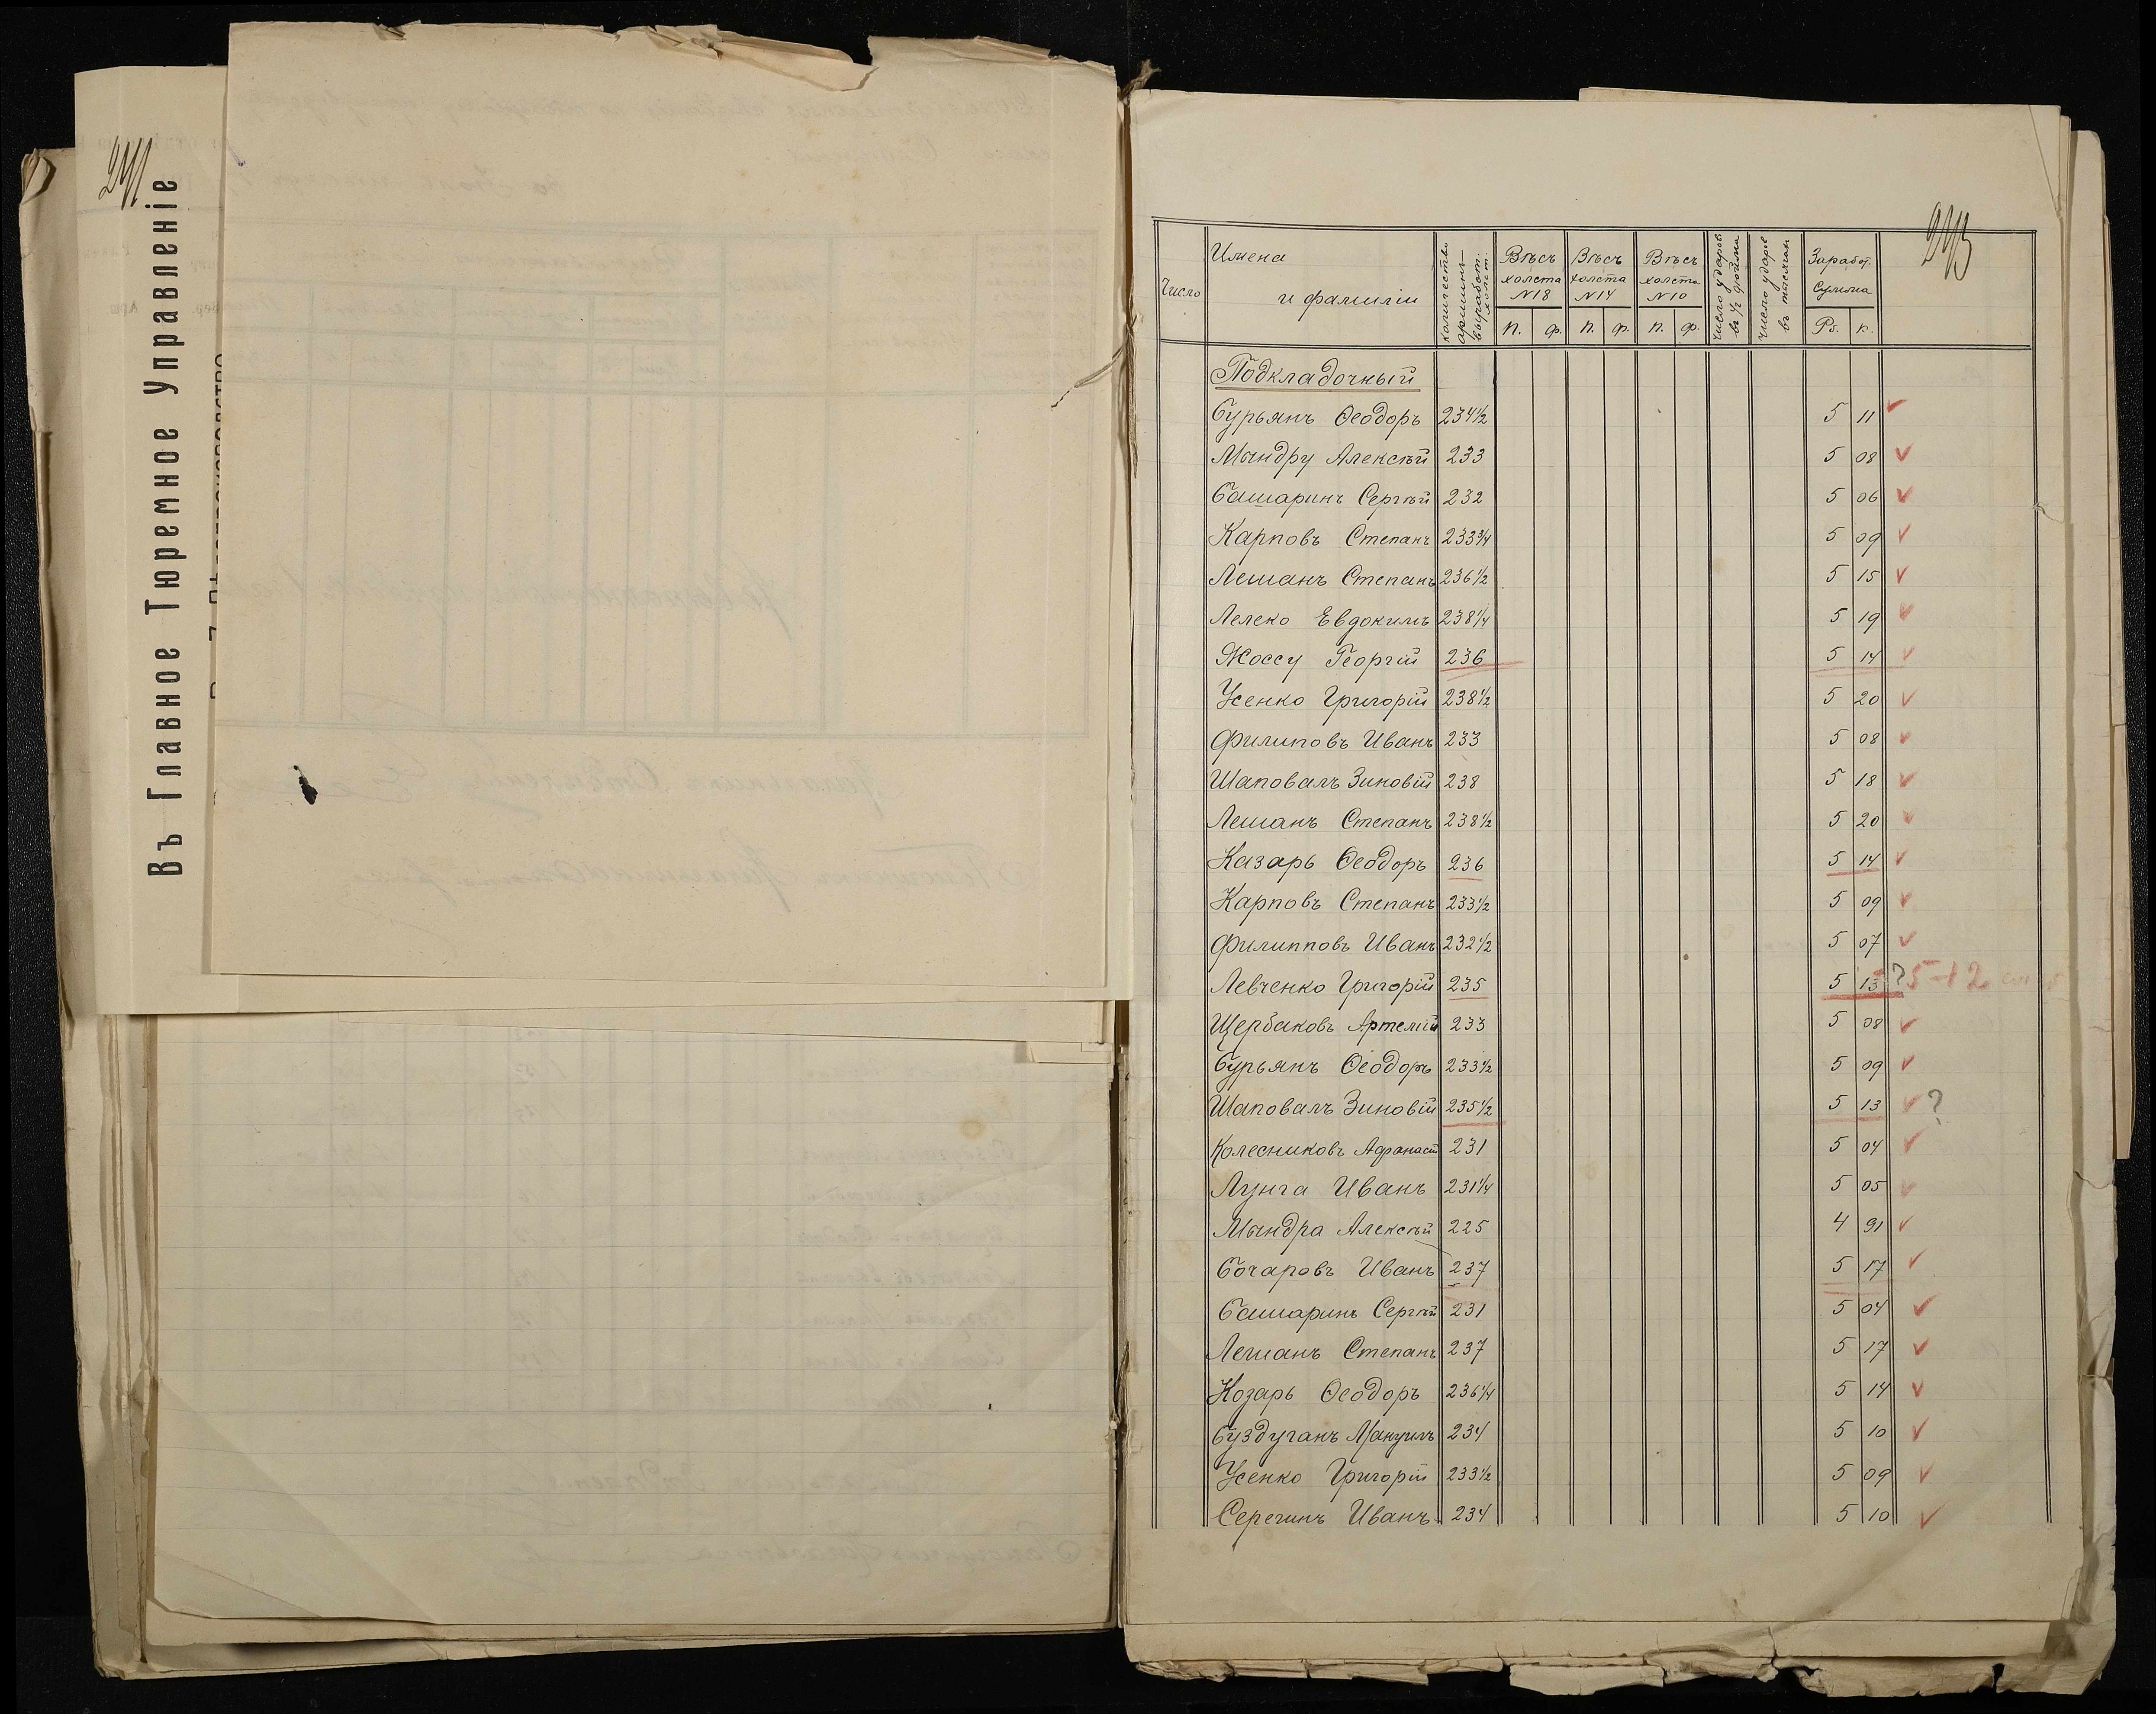 241
Въ Главное Тюремное Управленіе
243
Число
Имена
и фамиліи
количество аршинъ выработ. холст.
Вѣсъ холста №18
Вѣсъ холста №14
Вѣсъ холста №10
число ударов. въ 1/2 дюйма
число ударов въ тысячах
Заработ. Сумма
п. ф. п. ф. п. ф. Рб. к.
Подкладочный
Бурьянъ Ѳеодоръ 234 1/2 5 11
Мындру Алексѣй 233 5 08
Башаринъ Сергѣй 232 5 06
Карповъ Степанъ 233 3/4 5 09
Лешанъ Степанъ 236 1/2 5 15
Лелеко Евдокимъ 238 1/4 5 19
Жоссу Георгій 236 5 14
Усенко Григорій 238 1/2 5 20
Филиповъ Иванъ 233 5 08
Шаповалъ Зиновій 238 5 18
Лешанъ Степанъ 238 1/2 5 20
Казарь Ѳеодоръ 236 5 14
Карповъ Степанъ 233 1/2 5 09
Филипповъ Иванъ 232 1/2 5 07
Левченко Григорій 235 5 13 ? 5-12
Щербаковъ Артемій 233 5 08
Бурьянъ Ѳеодоръ 233 1/2 5 09
Шаповалъ Зиновій 235 1/2 5 13 ?
Колесниковъ Афанасій 231 5 04
Лунга Иванъ 231 1/4 5 05
Мындра Алексѣй 225 4 91
Бочаровъ Иванъ 237 5 17
Башаринъ Сергѣй 231 5 04
Лешанъ Степанъ 237 5 17
Козарь Ѳеодоръ 236 1/4 5 14
Буздуганъ Мануилъ 234 5 10
Усенко Григорій 233 1/2 5 09
Серегинъ Иванъ 234 5 10